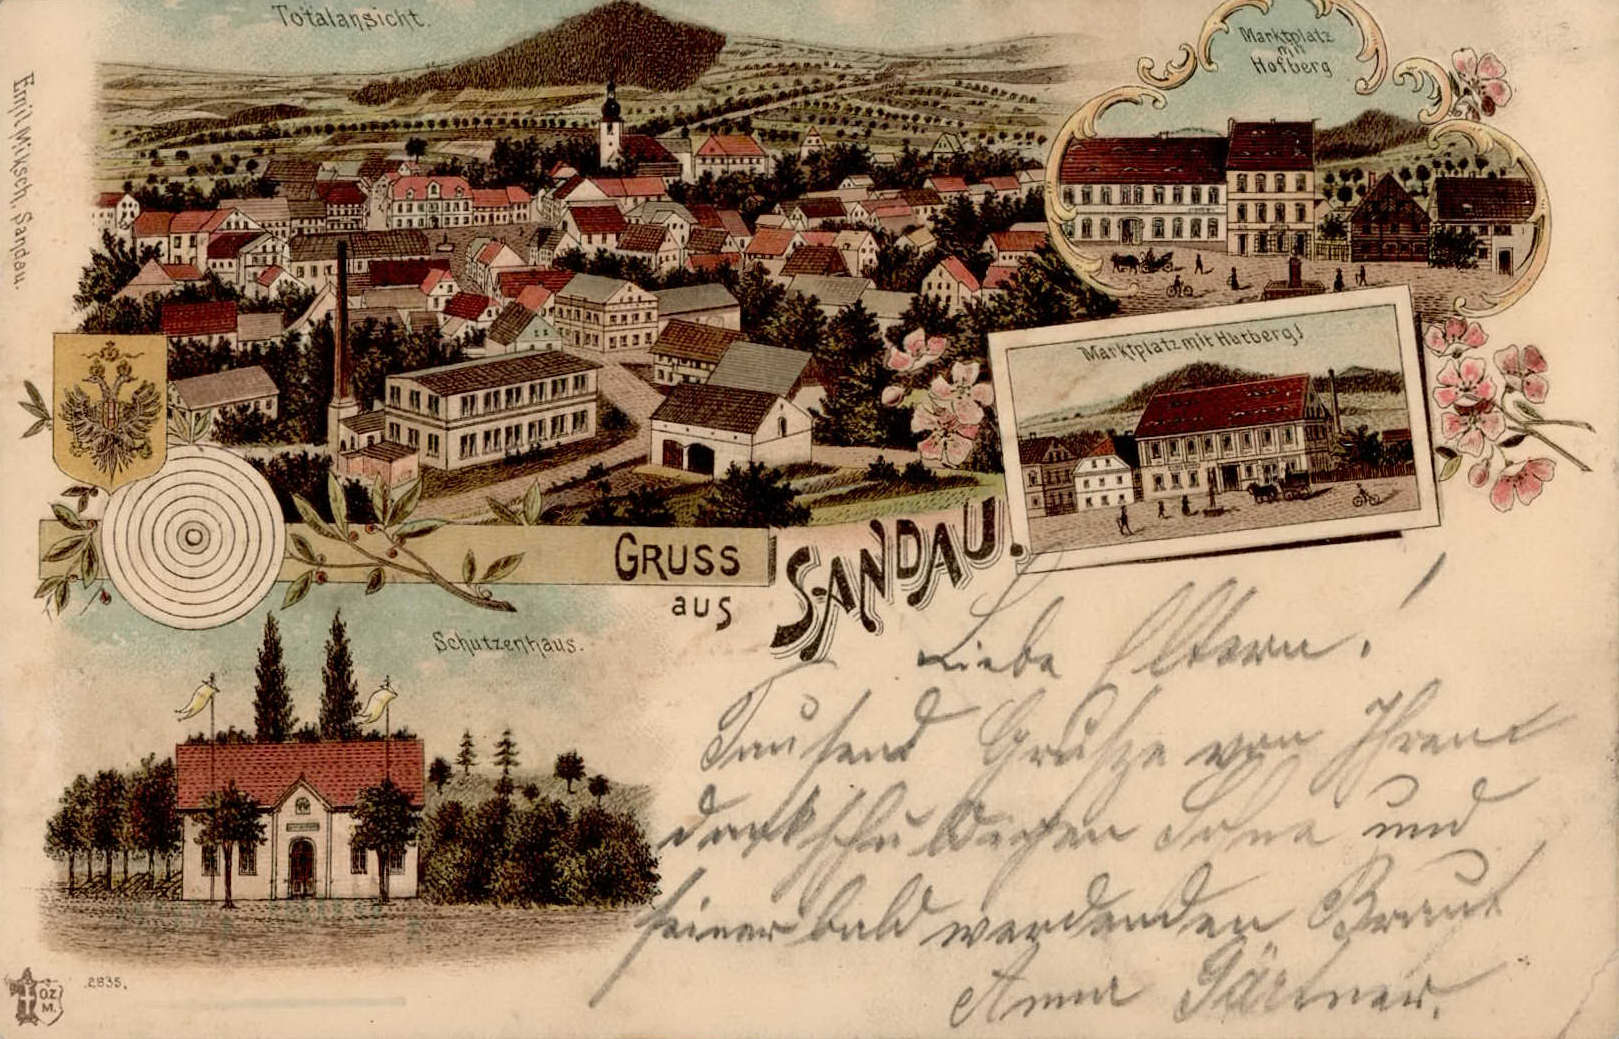 Totalansicht.
Marktplatz
mit
Hofberg
Emil Miksch, Sandau.
Marktplatz mit Hutberg!
GRUSS
aus
SANDAU.
Schutzenhaus.
Liebe Eltern!
Tausend Grüsze von Ihrem
dankschuldigen Sohne und
seiner bald werdenden Braut
Anna Gärtner.
O.Z.
M.
2835.